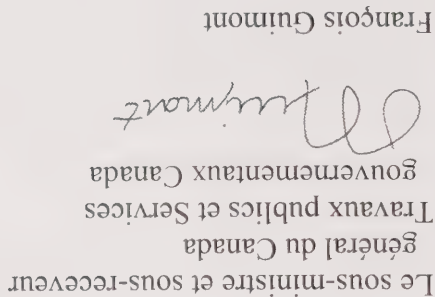 Le sous-ministre et sous-receveur
général du Canada
Travaux publics et Services
gouvernementaux Canada
Guimont
François Guimont